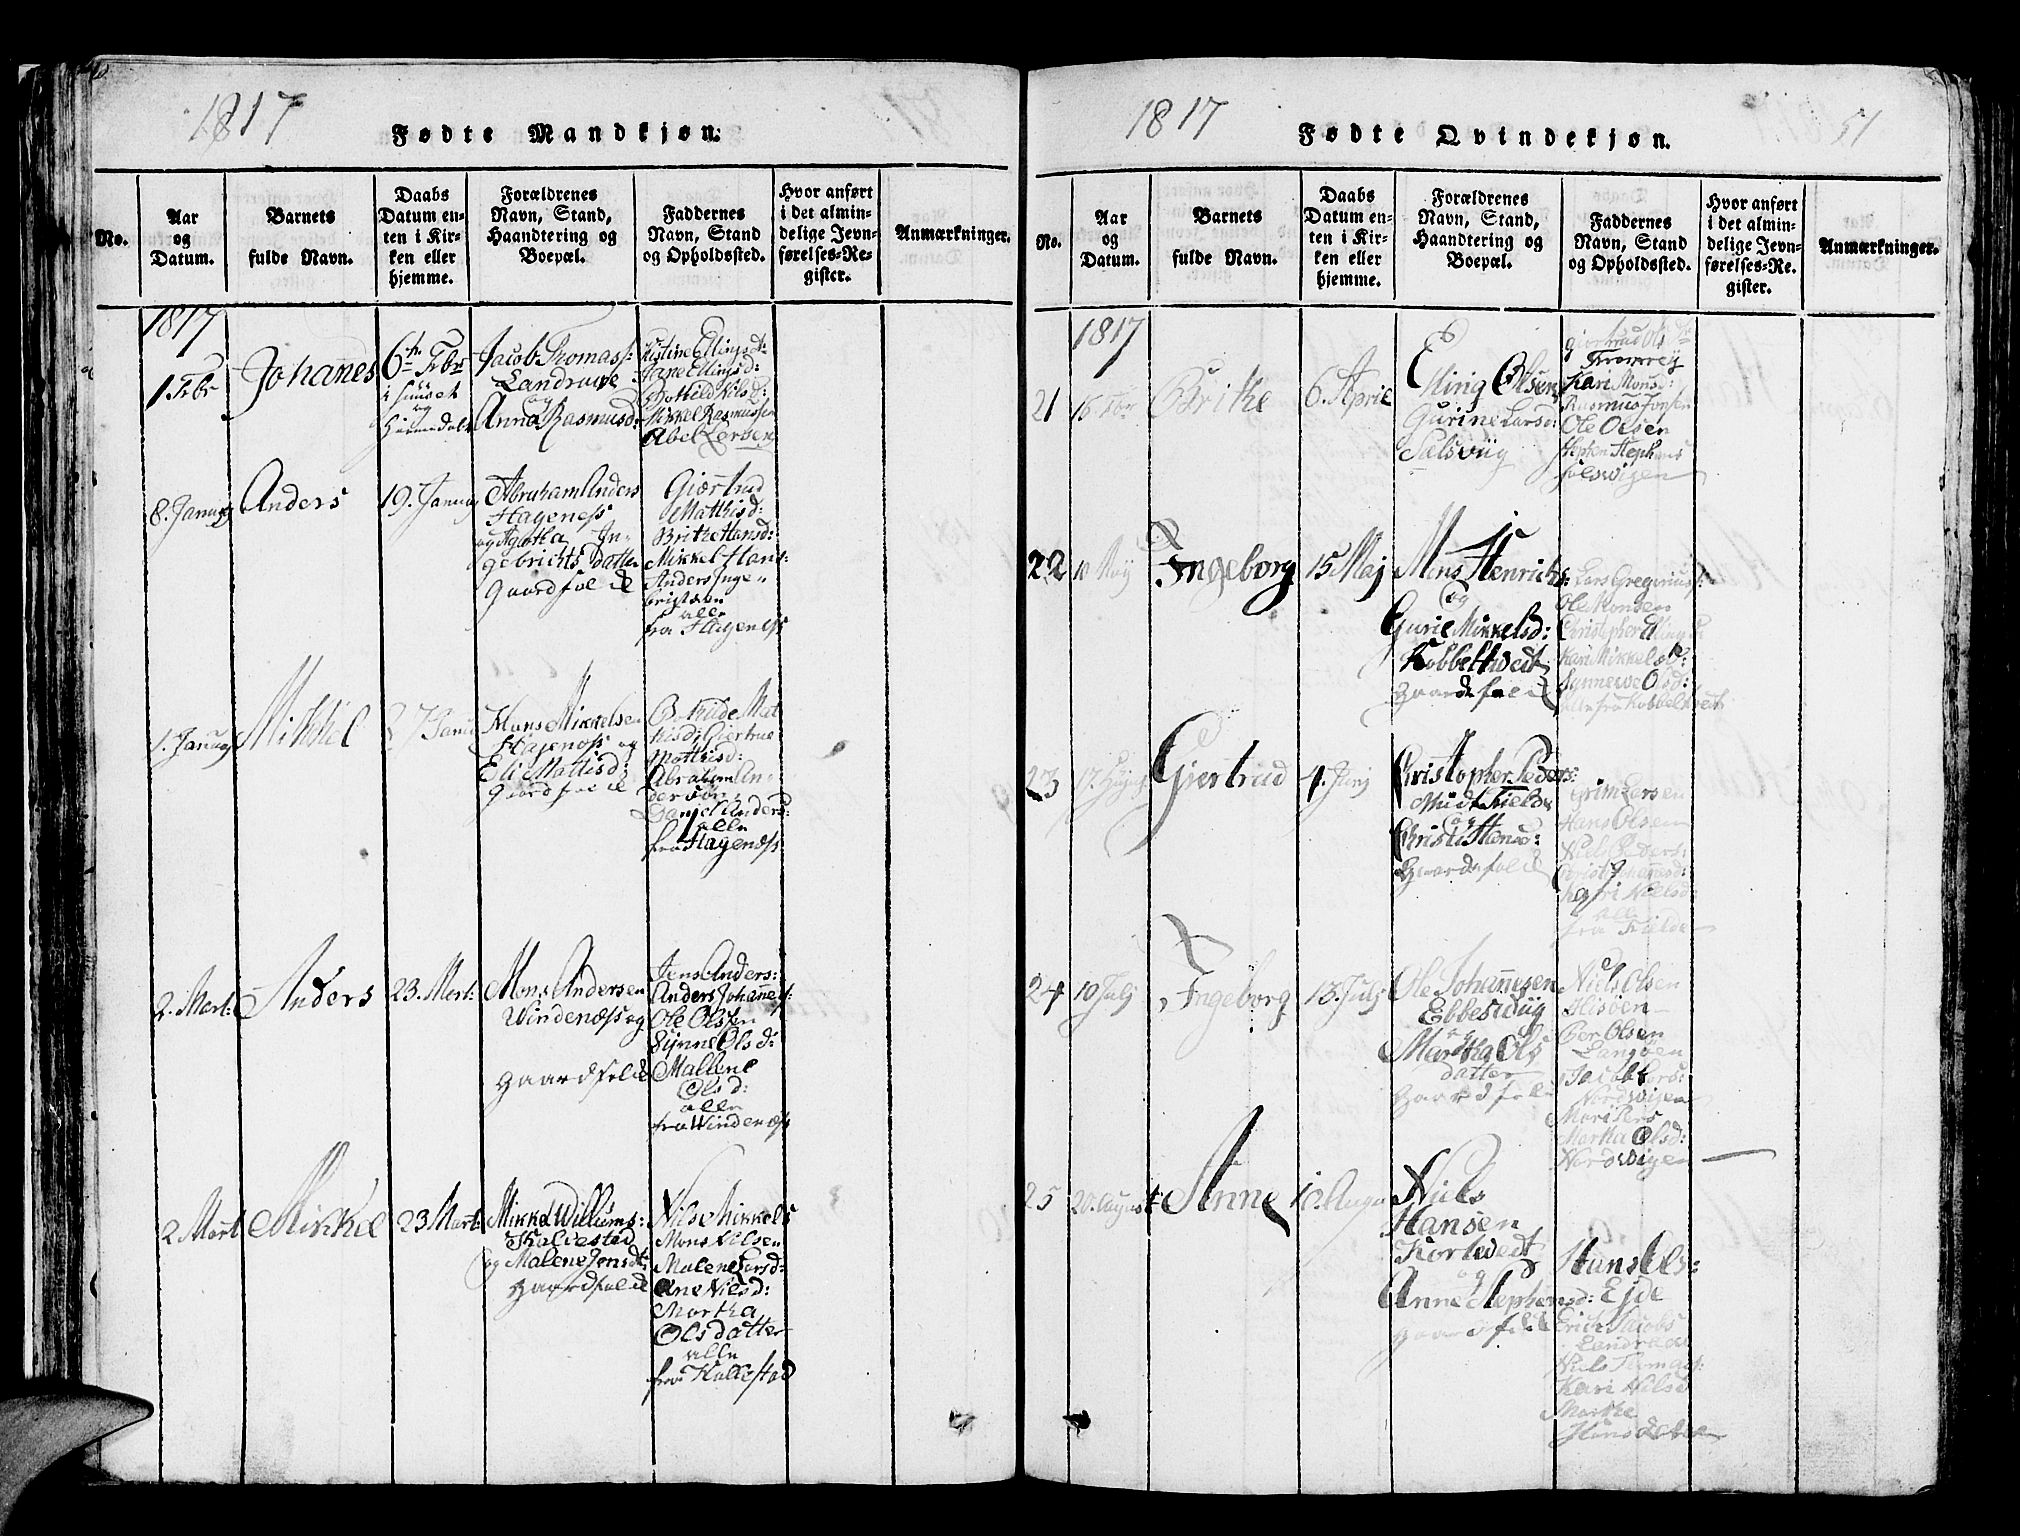 1817
Fødte Mandkjøn.
No.
Aar
og
Datum.
Barnets
fulde Navn.
Daabs
Datum en-
ten i Kir-
ken eller
hjemme.
Forældrenes
Navn, Stand,
Haandtering og
Boepæl.
Faddernes
Navn, Stand
og Opholdssted.
Hvor anført
i det almin-
delige Jevn-
førelses-Re-
gister.
Anmærkninger.
1817
1 Fbr
Johannes
6te Fbr
Jacob Thomass:
Landrawe
og
Anna Rasmusd:
Kistine Ellingsdt:
Botheld Nilsd:
Mikkel Rasmussen
Abel Larsen
8. Januarj
Anders
19. Januarj
Abraham Anders
Hageness
og Agatha In-
gebrichts datter
Gaardfolk
Giærtrud
Mathisd:
Brithe Hansd:
Mikkel Hans
Anders Inge-
brigtsen
alle
fra Hageness
1. Januarj
Mikkel
Hans Mikkelsen
Hageness og
Eli Mattisd:
Gaardfolk
Mathisd:
Abraham An-
dersøn,
Daniel Anders:
alle
fra Hagenæss
2. Mart:
Anders
23. Mert:
Mons Andersen
Windenæss og
Gaardfolk
Jens Anders:
Anders Johannes:
Ole Olssen
Synne Olsd:
Mallene
Olsd:
alle
fra Windenæss
2. Mart
Mikkel
23 Mart:
Mikkel Willums:
Hallestad
og Malene Jensdt:
Gaardfolk
Nils Mikkels
Mons Nilsen
Malene Larsd:
Ane Nilsd:
Martha
Olsdatter
alle
fra Hallestad
1817
Fødte Qvindekjøn.
51
No.
Aar
og
Datum.
Barnets
fulde Navn.
Daabs
Datum en-
ten i Kir-
ken eller
hjemme.
Forældrenes
Navn, Stand,
Haandtering og
Boepæl.
Faddernes
Navn, Stand
og Opholdssted.
Hvor anført
i det almin-
delige Jevn-
førelses-Re-
gister.
Anmærkninger.
1817
21
Brithe
6. April
Elling Olsen
Gurine Larsd:
Sælsviig
Kari Monsd:
Rasmus Jonsen
Ole Olsen
Stephen Stephens
Solswigen
22
10 Maij
Ingeborg
15 Maj
Mons Henrichs:
og
Gurie Mikkelsd:
Kobbeltwedt
Gaardsfolk
Lars Gregoriuss:
Ole Monsen
Christopher Ellings
Kari Mikkelsd:
Synnewe Olsd:
alle fra Kobbeltvedt
23
Giertrud
4. Junj
Christopher Peders:
Midt Field
og
Christi Hansd:
Gaardsfolk
Grim Larsen
Hans Olsen
Niels Peders:
Christi Johannesd:
Nielsd
alle
fra Fielde
24
10 Julj
Ingeborg
13. Julj
Ole Johannesen
Ebbeswiig
og
Martha Ols
datter
Gaardfolk
Niels Olsen
Hisøen
Per Olsen
Langøen
Jacob Lars:
Nordwigen
Mari Pers
Martha Olsd:
Nordwigen
25
20. August
Anne
Niels
Hansen
Kortwedt
og
Anne Stephensd:
Gaardfolk
Hans Ols:
Ejde
Erich Jacobs
Landrawe
Niels Thomass:
Kari Nilsd
Marthe
Hansdatter